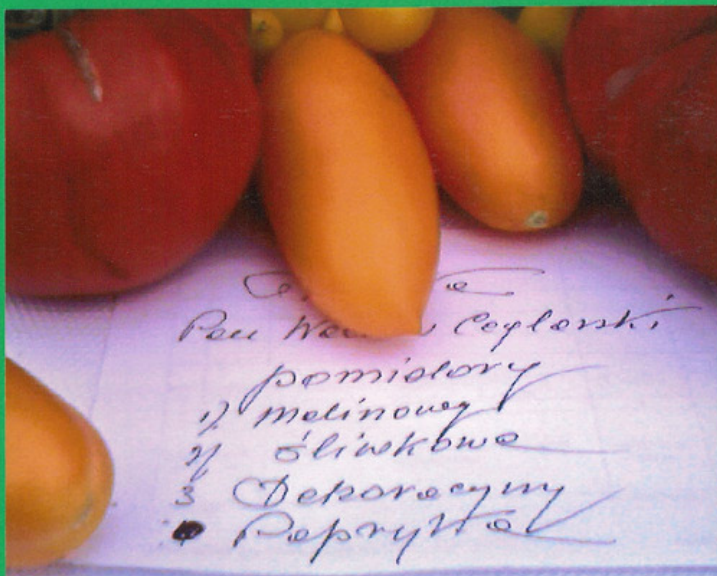 Pan Ceglarski
pomidory
1) malinowy
2) śliwkowe
3 Dekoracyjny
Papryka